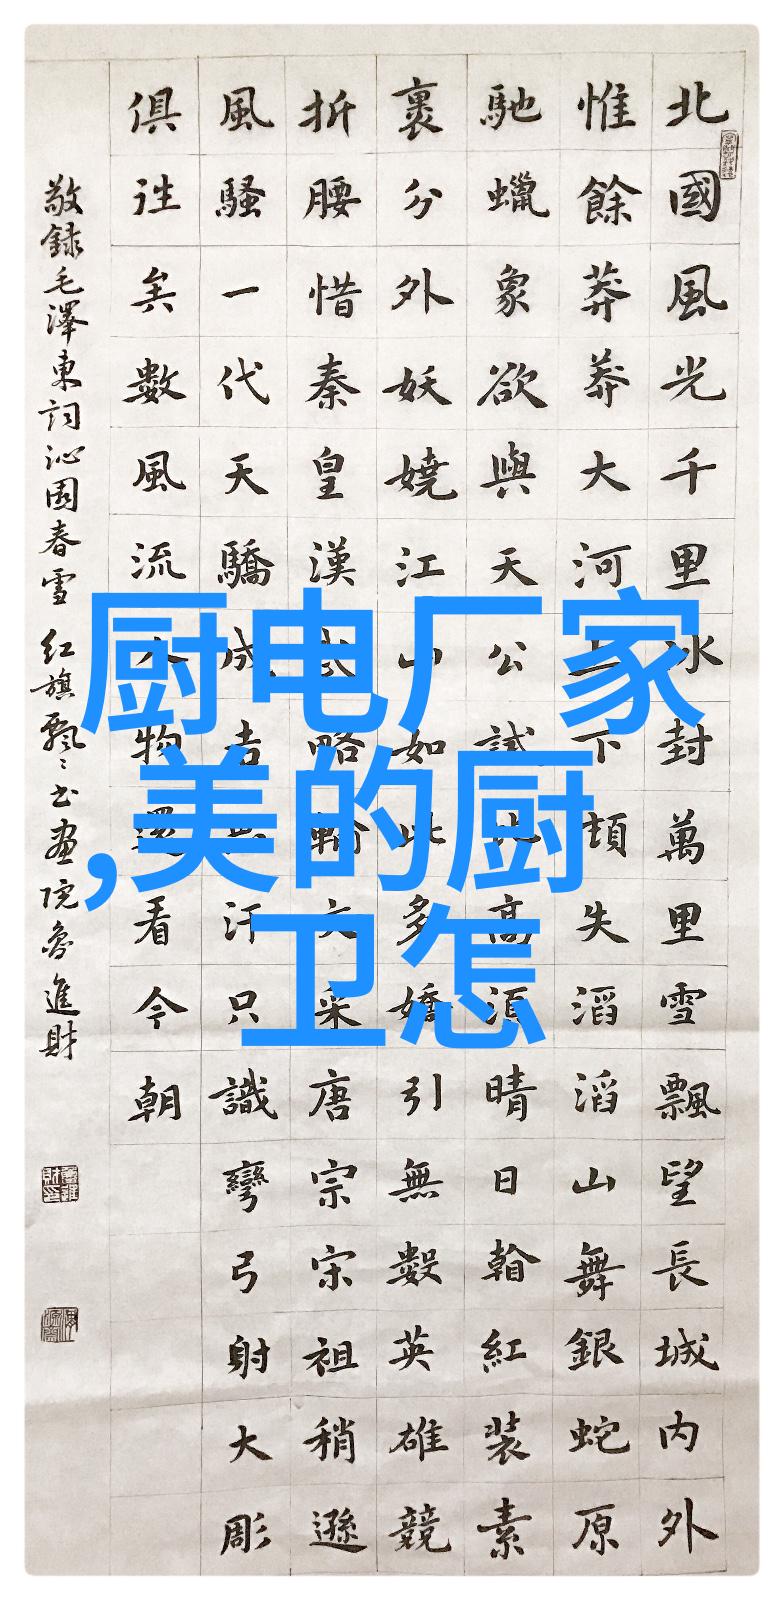 厨电厂家
,美的厨
卫怎
北國風光千里冰封萬里雪飄望長城内外
惟餘莽莽大河上下頡失滔滔山舞銀蛇原
馳蠟象欲與天公試比高須晴日翰紅裝素
裹分外妖嬈江山如此多嬌引無數英雄競
折腰惜秦皇漢武略輸文采唐宗宋祖稍遜
風騷一代天驕成吉思汗只識彎弓射大彫
俱往矣數風流人物還看今朝
敬録毛澤東詞沁園春雪 红旗飄〻书畫院魯進財